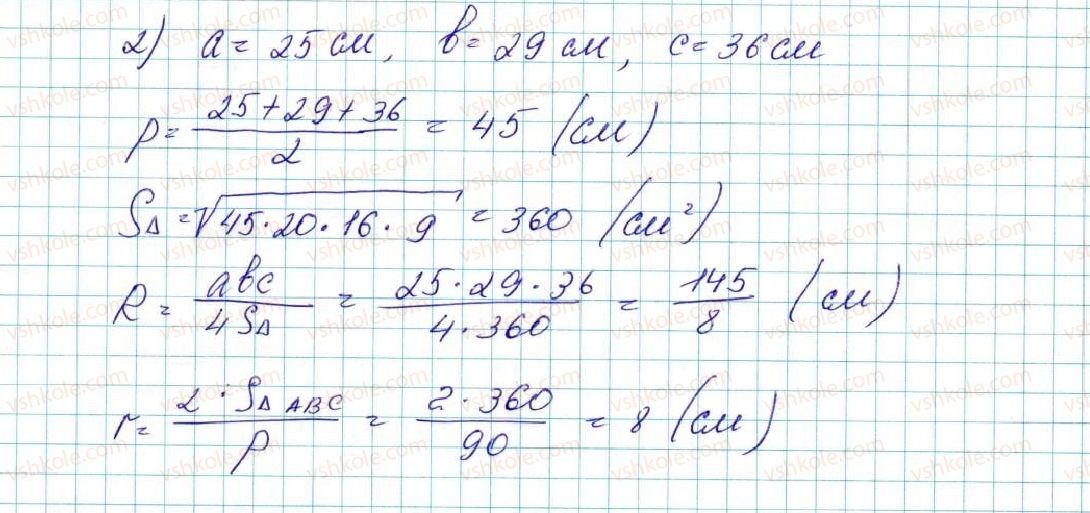 2) a = 25 см, b = 29 см, c = 36 см
p = (25+29+36)/2 = 45 (см)
S∆ = √(45·20·16·9) = 360 (см²)
R = abc/4S∆ = (25·29·36)/(4·360) = 145/8 (см)
r = (2·S∆ABC)/p = (2·360)/90 = 8 (см)
vshkole.com